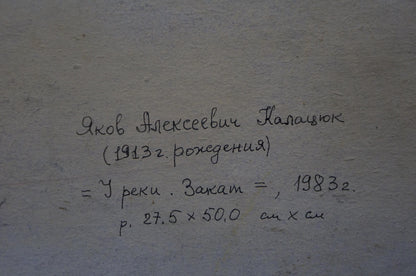 Яков Алексеевич Калацюк
(1913г. рождения)
= У реки. Закат =, 1983г.
р. 27.5 × 50.0 см × см